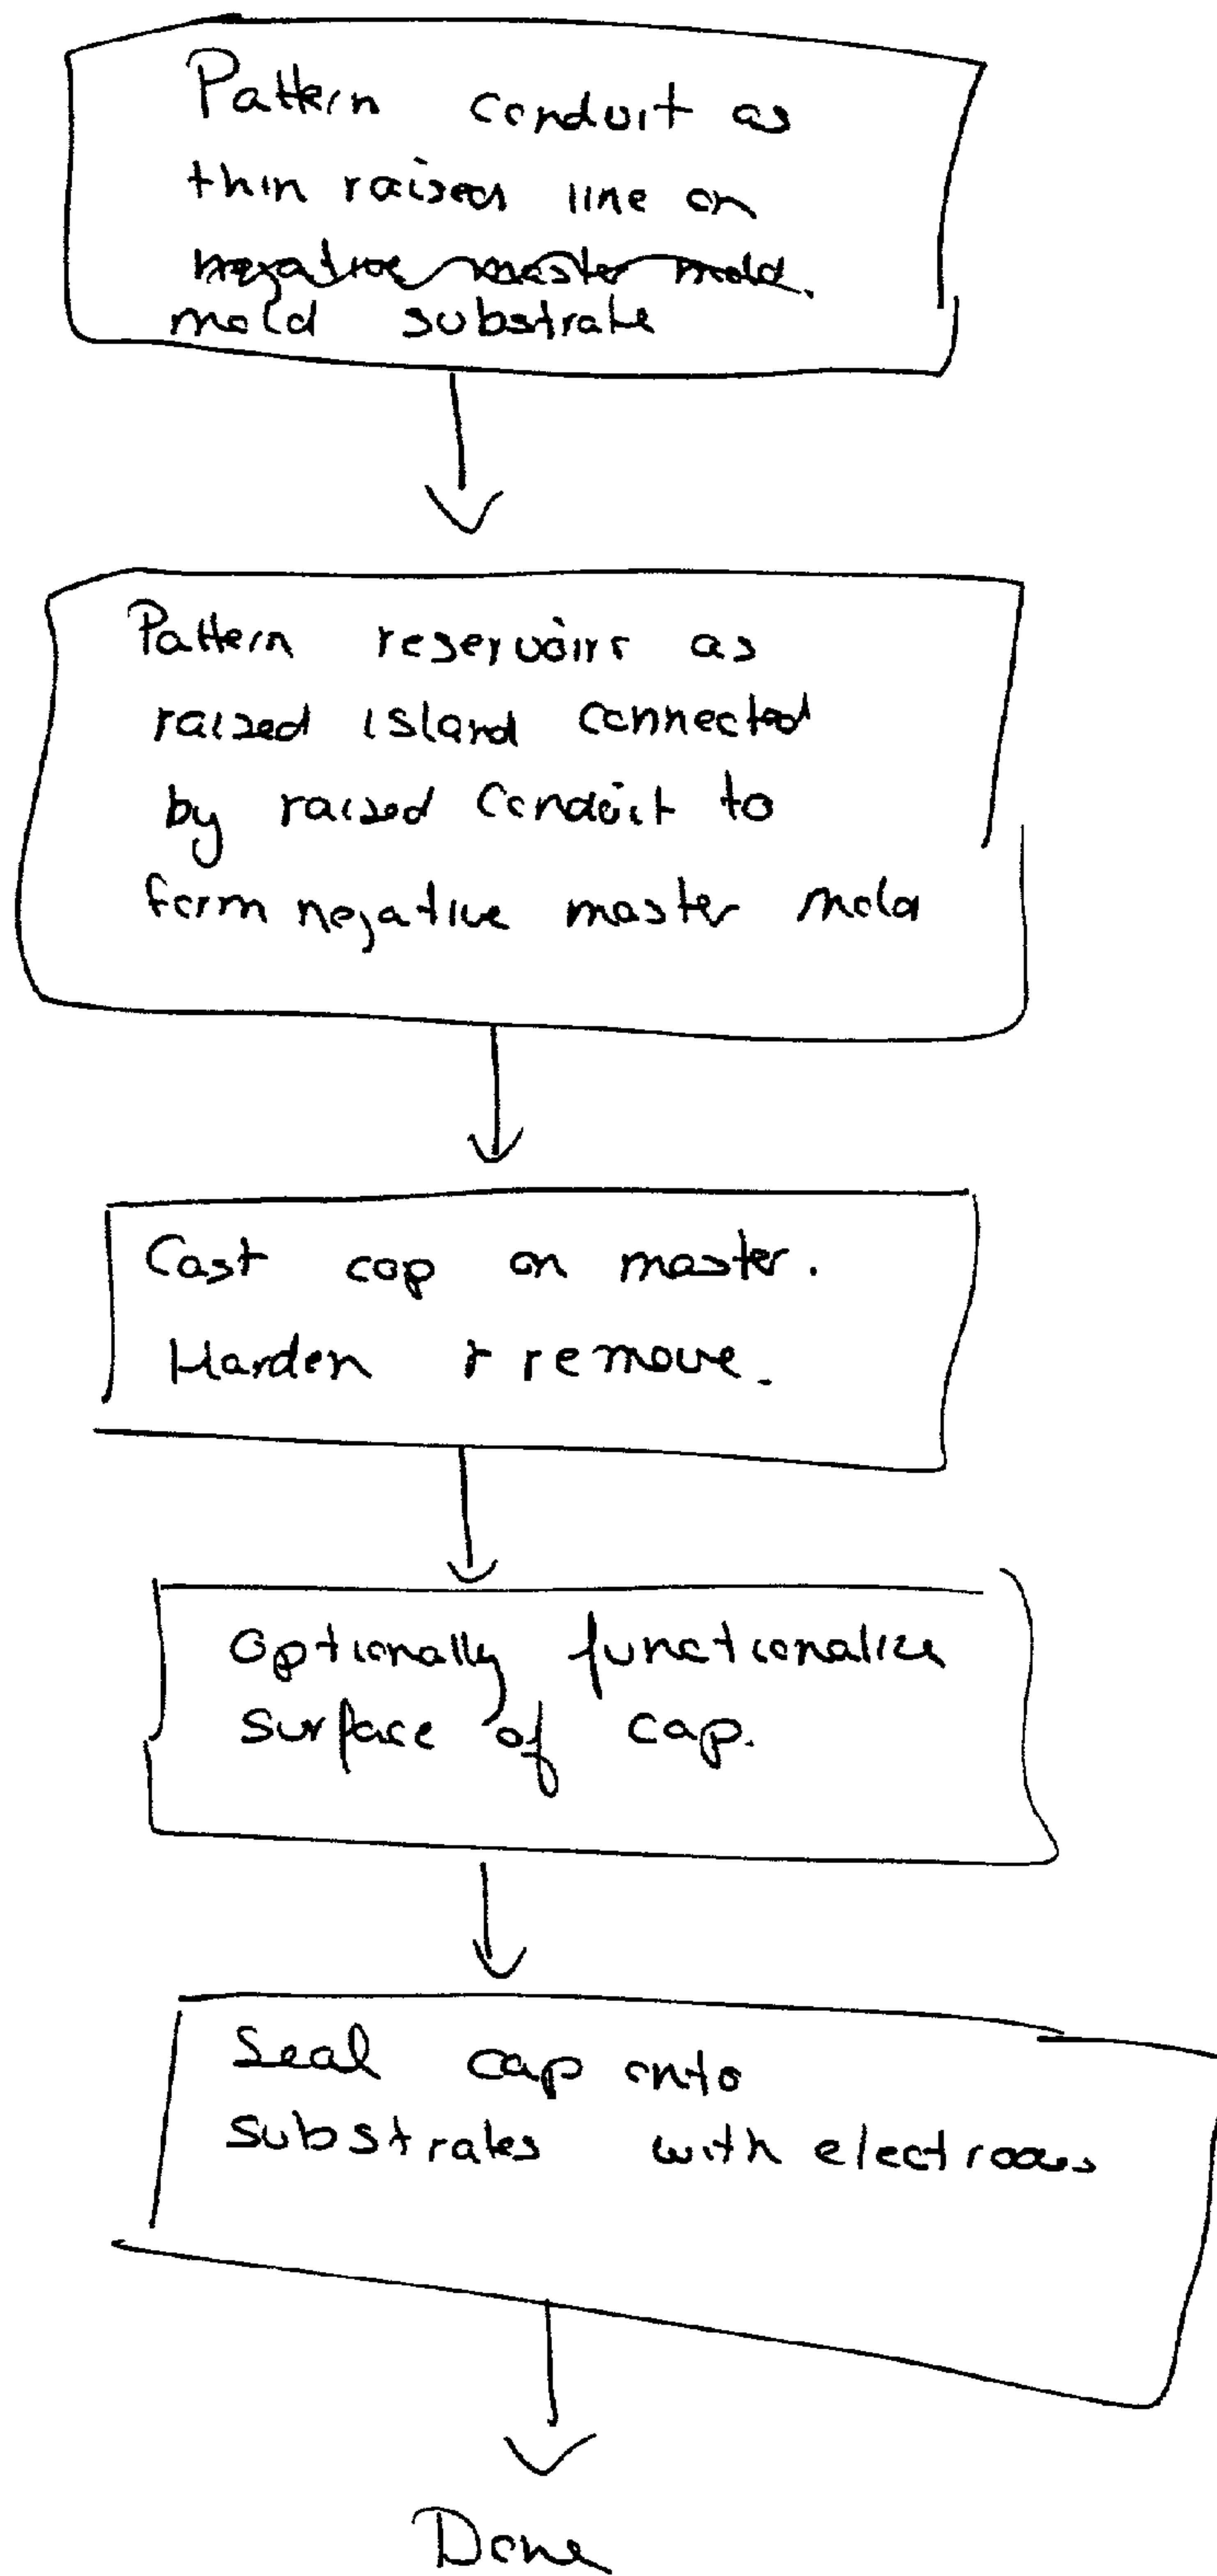 Pattern conduit as
thin raised line on
negative master mold.
mold substrate
Pattern reservoirs as
raized island connected
by raized conduit to
form negative master mold
Cast cap on master.
Harden + remove.
Optionally functionalize
surface of cap.
Seal cap onto
substrates with electrodes
Done